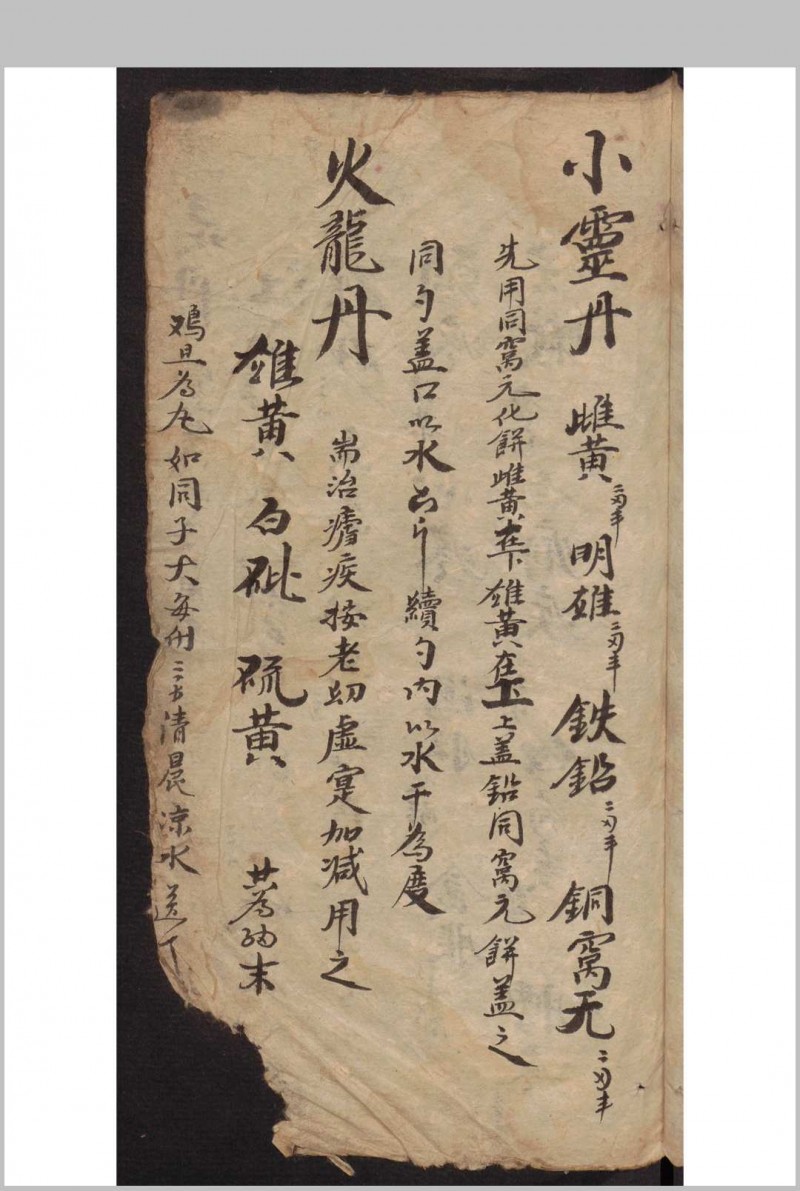 小靈丹 雌黃二両半 明雄二両半 鉄鉛二両半 銅窩元二両半
先用同窩元化餅雌黃在下雄黃在上上盖鉛同窩元餅盖之
同勺盖口以水 續勺內以水干為度
火龍丹 耑治瘧疾按老幼虛寔加減用之
雄黃 白砒 硫黃 共為細末
鸡旦為丸如同子大每付三六清晨凉水送下